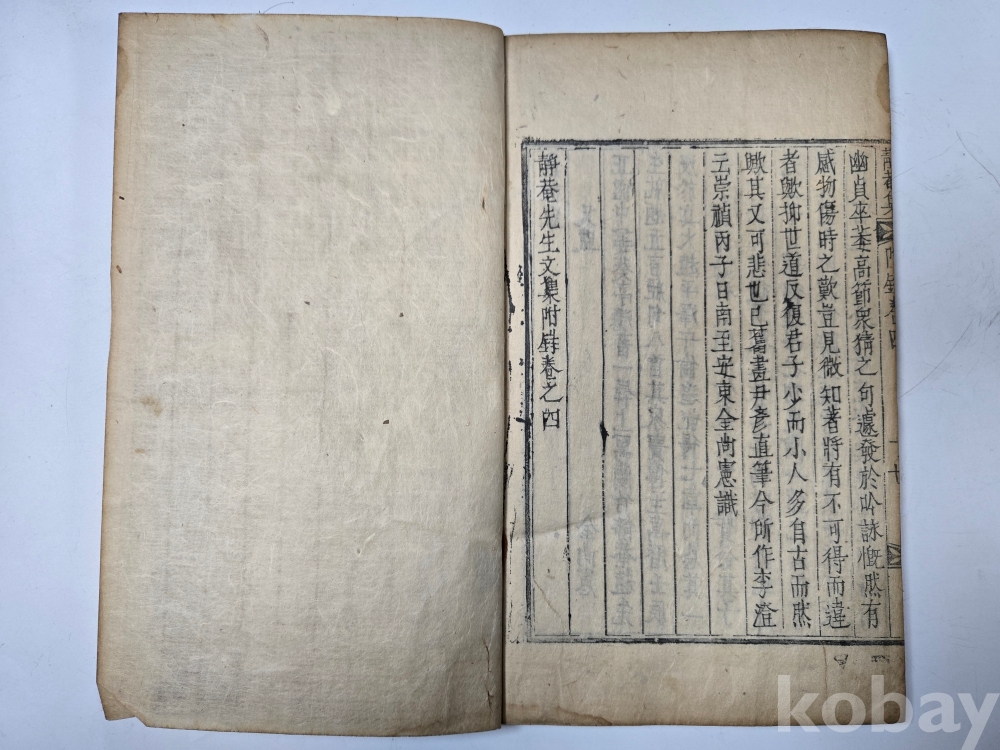 幽貞卒萎高節衆猜之句遽發於吟詠慨然有
感物傷時之歎豈見微知著將有不可得而違
者歟抑世道反復君子少而小人多自古而然
歟其又可悲也已舊畫尹彦直筆今所作李澄
云崇禎丙子日南至安東金尙憲識
靜菴先生文集附錄卷之四
kobay